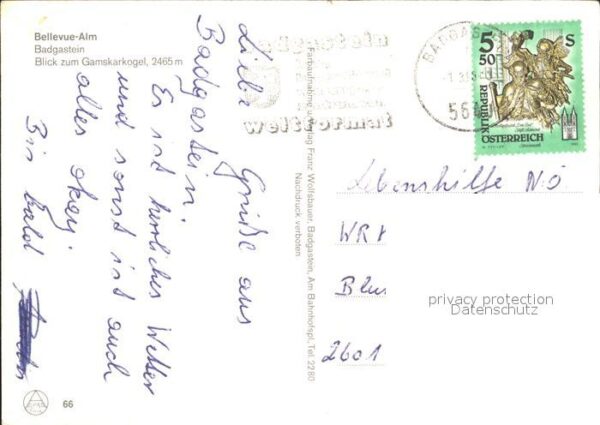 Bellevue-Alm
Badgastein
Blick zum Gamskarkogel, 2465 m
Liebe Grüße aus
Badgastein.
Es ist herrliches Wetter
und sonst ist auch
alles okay.
Bis bald
66
Farbaufnahme u. Verlag Franz Wolfsbauer, Badgastein, Am Bahnhofpl., Tel. 2280
Nachdruck verboten
badgastein
weltformat
BADGAS
5
50
S
REPUBLIK
ÖSTERREICH
Lebenshilfe NÖ
2601
privacy protection
Datenschutz